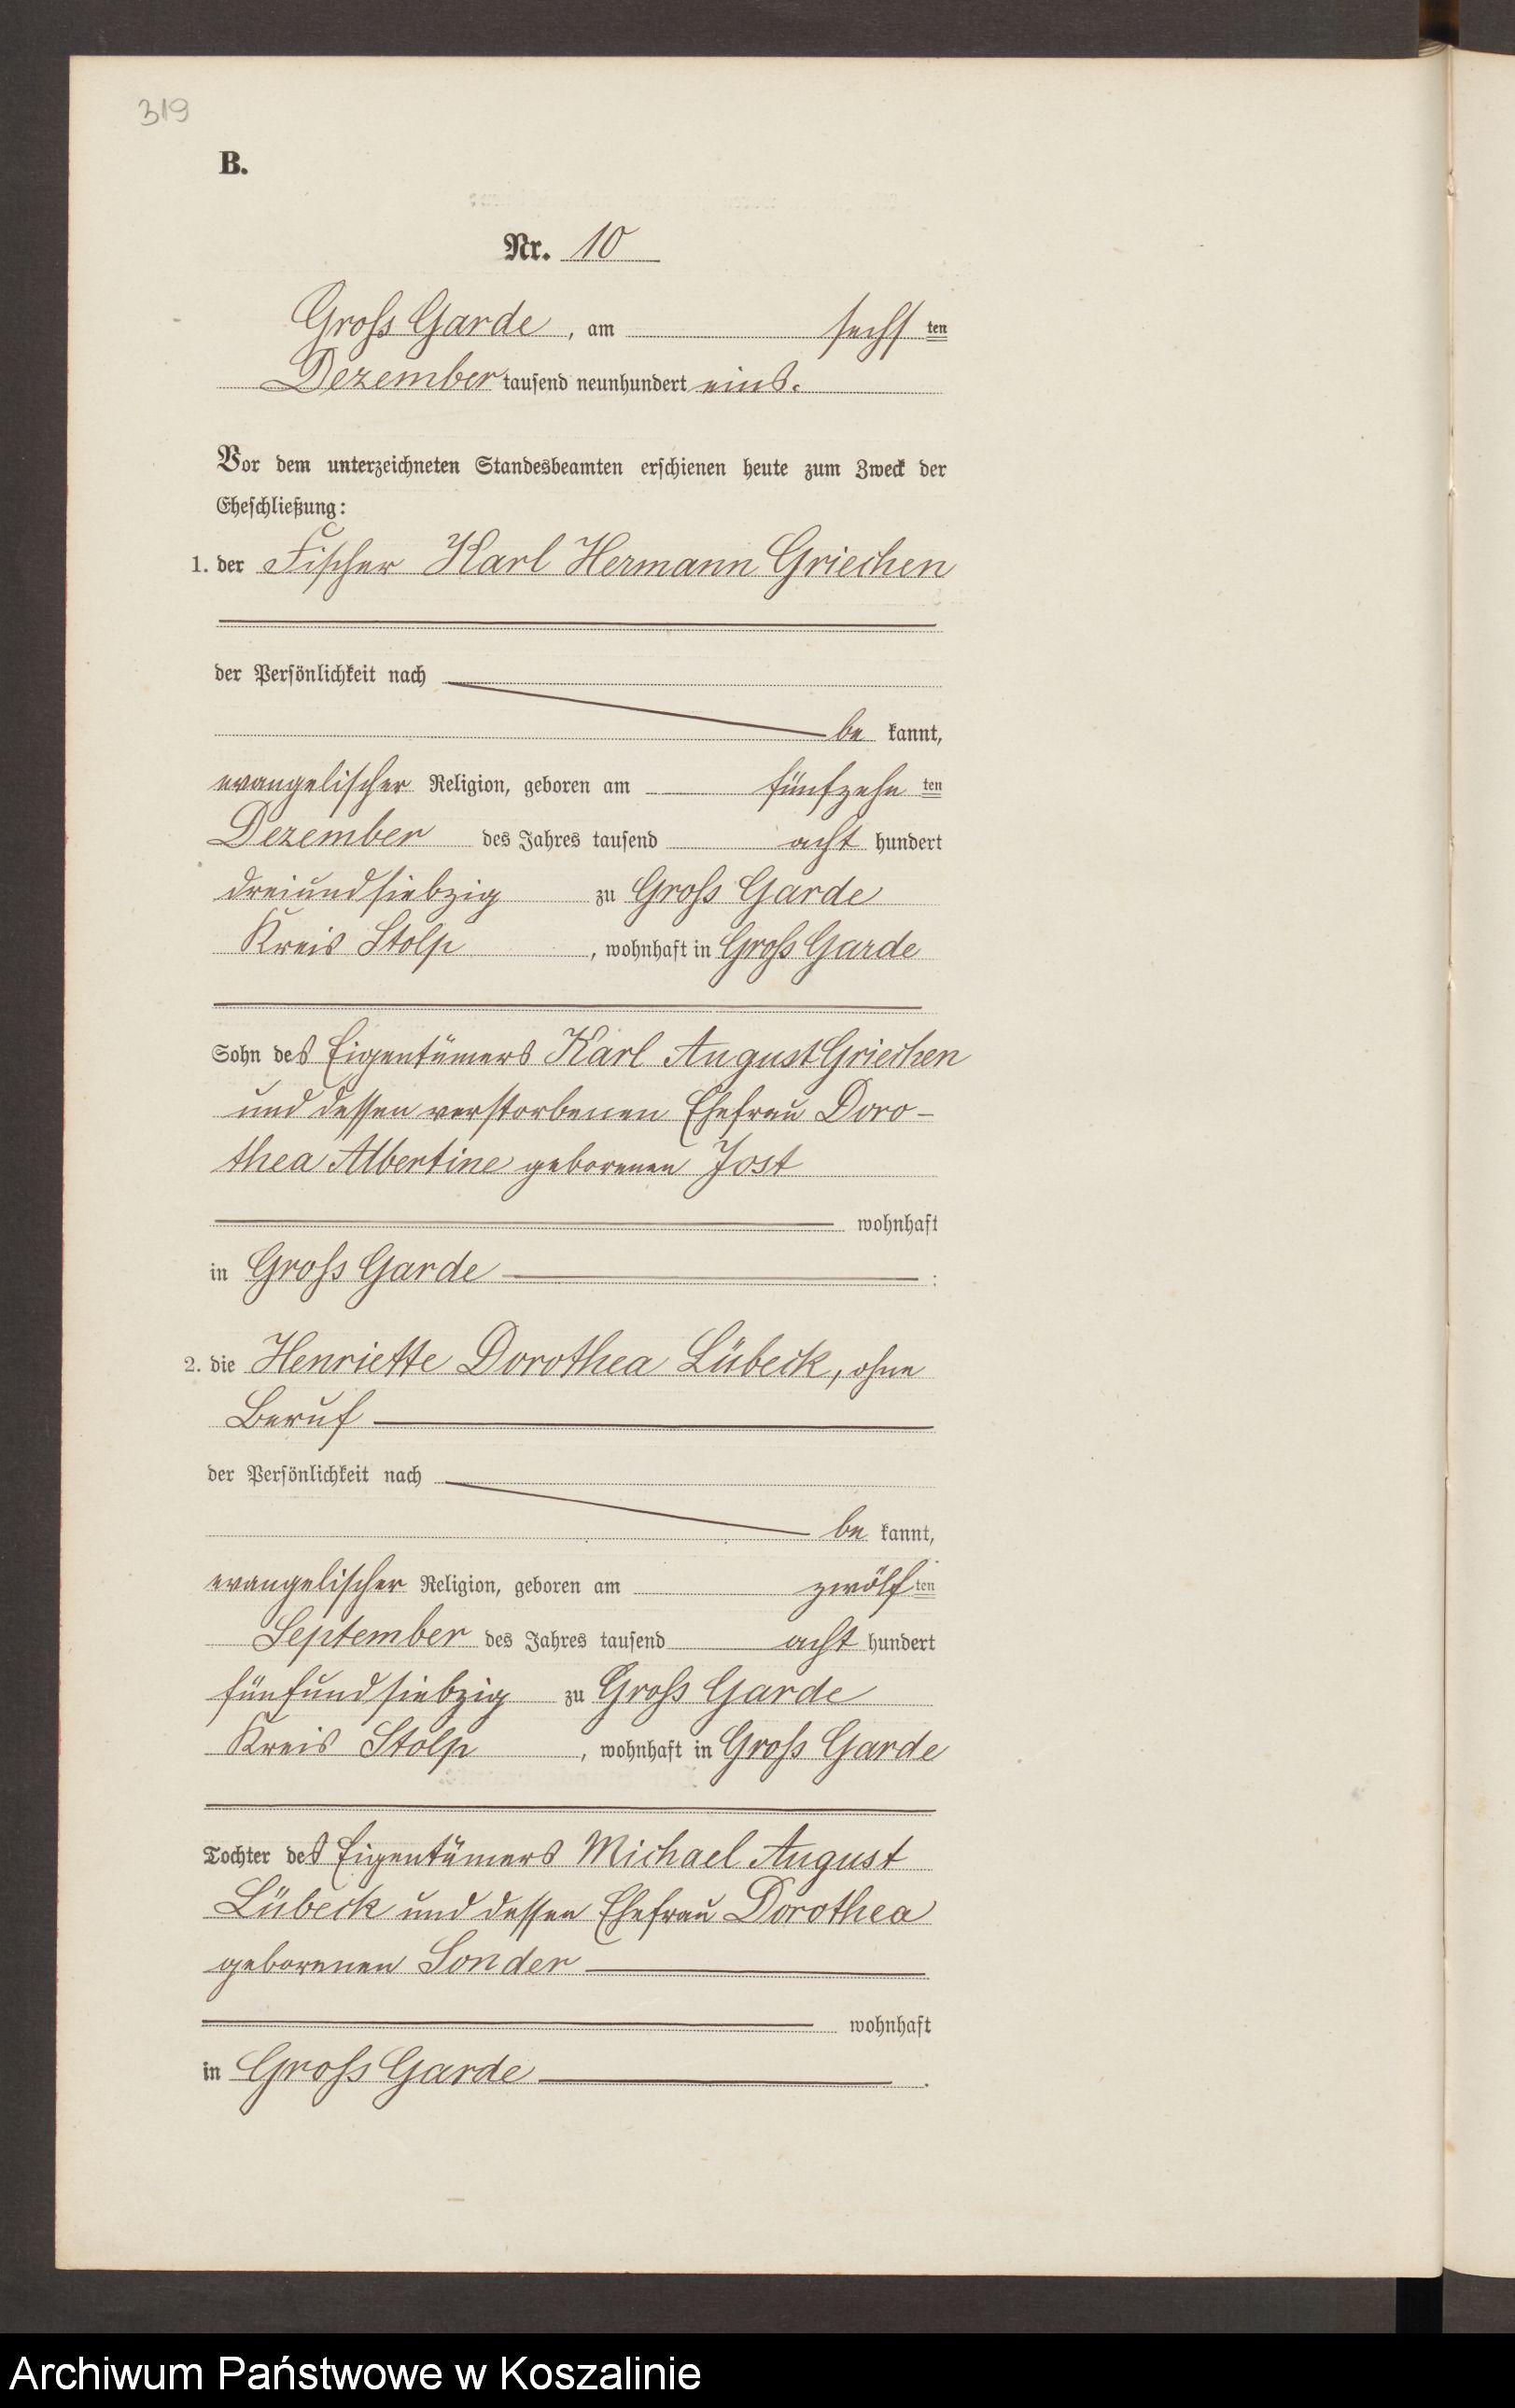 319
B.
Nr. 10
Gross Garde, am sechsten
Dezember tausend neunhundert eins.
Vor dem unterzeichneten Standesbeamten erschienen heute zum Zweck der
Eheschließung:
1. der Fischer Karl Hermann Griechen
der Persönlichkeit nach
bekannt,
evangelischer Religion, geboren am fünfzehnten
Dezember des Jahres tausend achthundert
dreiundsiebzig zu Gross Garde
Kreis Stolp, wohnhaft in Gross Garde
Sohn des Eigentümers Karl August Griechen
und dessen verstorbenen Ehefrau Doro-
thea Albertine geborenen Jost
wohnhaft
in Gross Garde :
2. die Henriette Dorothea Lübeck, ohne
Beruf
der Persönlichkeit nach
bekannt,
evangelischer Religion, geboren am zwölften
September des Jahres tausend achthundert
fünfundsiebzig zu Gross Garde
Kreis Stolp, wohnhaft in Gross Garde
Tochter des Eigentümers Michael August
Lübeck und dessen Ehefrau Dorothea
geborenen Sonder
wohnhaft
in Gross Garde .
Archiwum Państwowe w Koszalinie